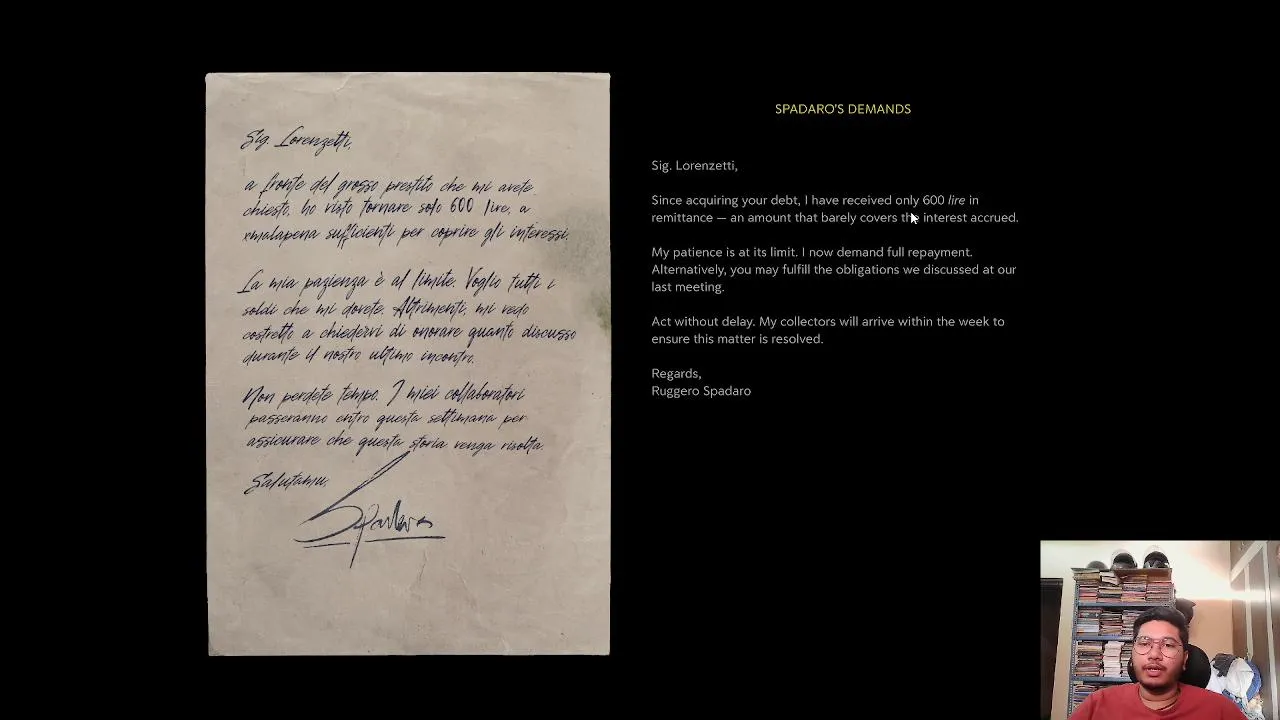 Sig. Lorenzetti,
a fronte del grosso prestito che mi avete
chiesto, ho visto tornare solo 600 lire, a
xmalapena sufficienti per coprire gli interessi.
La mia pazienza è al limite. Voglio tutti i
soldi che mi dovete. Altrimenti, mi vedo
costretto a chiedervi di onorare quanto discusso
durante il nostro ultimo incontro.
Non perdete tempo. I miei collaboratori
passeranno entro questa settimana per
assicurare che questa storia venga risolta.
Salutamu,
Spadaro
SPADARO'S DEMANDS
Sig. Lorenzetti,
Since acquiring your debt, I have received only 600 lire in
remittance — an amount that barely covers the interest accrued.
My patience is at its limit. I now demand full repayment.
Alternatively, you may fulfill the obligations we discussed at our
last meeting.
Act without delay. My collectors will arrive within the week to
ensure this matter is resolved.
Regards,
Ruggero Spadaro